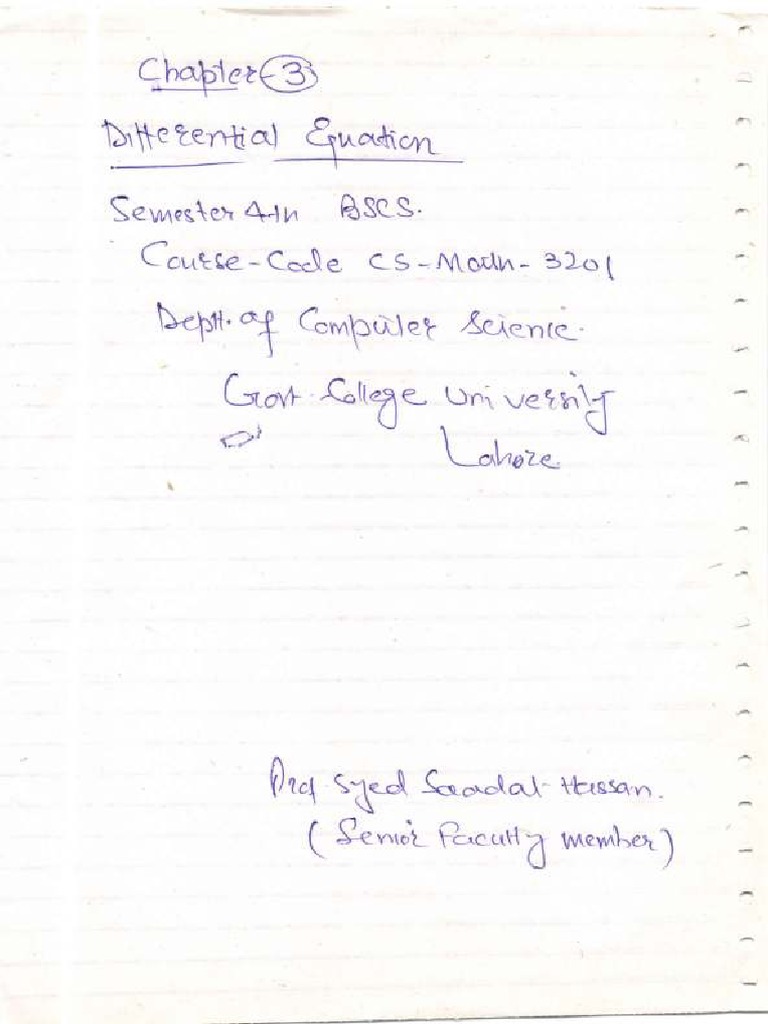 Chapter-3
Differential Equation
Semester 4th BSCS.
Course-Code CS-Math-3201
Deptt. of Computer Science.
Govt. College University
Lahore.
Prof Syed Saadat Hassan.
(Senior Faculty member)